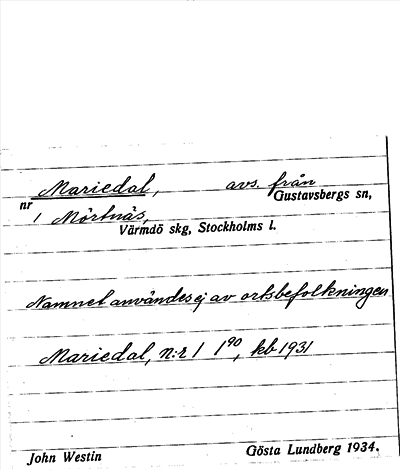 Mariedal, avs. från
nr Gustavsbergs sn,
1 Mörtnäs,
Värmdö skg, Stockholms l.
Namnet användes ej av ortsbefolkningen
Mariedal, n:r 1 1⁹⁰, kb 1931
John Westin Gösta Lundberg 1934.